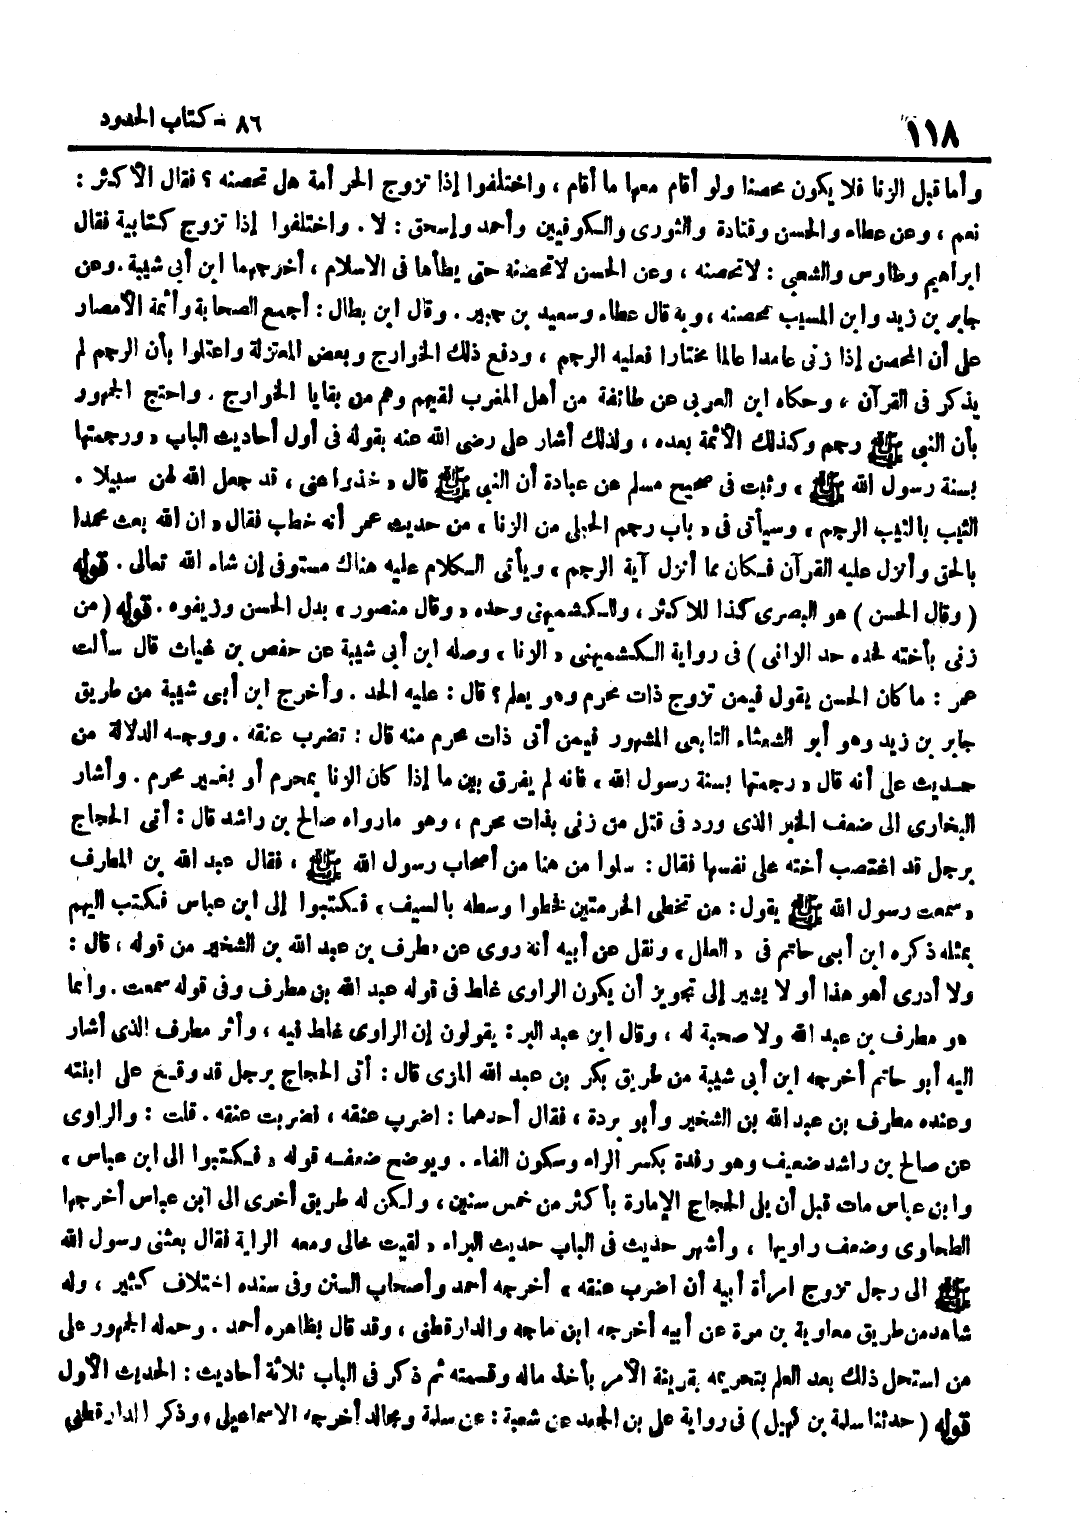 ١١٨
٨٦ - كتاب الحدود
وأما قبل الزنا فلا يكون محصنا ولو أقام معها ما أقام ، واختلفوا إذا تزوج الحر أمة هل تحصنه ؟ فقال الأكثر :
نعم ، وعن عطاء والحسن وقتادة والثورى والكوفيين وأحمد وإسحق : لا . واختلفوا إذا تزوج كتابية فقال
ابراهيم وطاوس والشعبي : لاتحصنه ، وعن الحسن لاتحصنه حتى يطأها فى الاسلام ، أخرجهما ابن أبي شيبة . وعن
جابر بن زيد وابن المسيب تحصنه ، وبه قال عطاء وسعيد بن جبير . وقال ابن بطال : أجمع الصحابة وأئمة الأمصار
على أن المحصن إذا زنى عامدا عالما مختارا فعليه الرجم ، ودفع ذلك الخوارج وبعض المعتزلة واعتلوا بأن الرجم لم
يذكر فى القرآن ، وحكاه ابن العربى عن طائفة من أهل المغرب لقيهم وهم من بقايا الخوارج . واحتج الجمهور
بأن النبي ﷺ رجم وكذلك الأئمة بعده ، ولذلك أشار على رضى الله عنه بقوله فى أول أحاديث الباب « ورجمتها
بسنة رسول الله ﷺ » وثبت فى صحيح مسلم عن عبادة أن النبي ﷺ قال « خذوا عنى ، قد جعل الله لهن سبيلا .
الثيب بالثيب الرجم » وسيأتى فى « باب رجم الحبلى من الزنا » من حديث عمر أنه خطب فقال « ان الله بعث محمدا
بالحق وأنزل عليه القرآن فكان مما أنزل آية الرجم » ويأتى الكلام عليه هناك مستوفى إن شاء الله تعالى . قوله
( وقال الحسن ) هو البصرى كذا للاكثر ، وللكشميهنى وحده « وقال منصور » بدل الحسن وزيفوه . قوله ( من
زنى بأخته فحده حد الزانى ) فى رواية الكشميهنى « الزنا » وصله ابن أبي شيبة عن حفص بن غياث قال سألت
عمر : ما كان الحسن يقول فيمن تزوج ذات محرم وهو يعلم ؟ قال : عليه الحد . وأخرج ابن أبى شيبة من طريق
جابر بن زيد وهو أبو الشعثاء التابعى المشهور فيمن أتى ذات محرم منه قال : تضرب عنقه . ووجه الدلالة من
حديث على أنه قال « رجمتها بسنة رسول الله ، فانه لم يفرق بين ما إذا كان الزنا بمحرم أو بغير محرم . وأشار
البخارى الى ضعف الخبر الذى ورد فى قتل من زنى بذات محرم ، وهو مارواه صالح بن راشد قال : أتى الحجاج
برجل قد اغتصب أخته على نفسها فقال : سلوا من هنا من أصحاب رسول الله ﷺ ، فقال عبد الله بن المطرف
« سمعت رسول الله ﷺ يقول : من تخطى الحرمتين فخطوا وسطه بالسيف » فكتبوا إلى ابن عباس فكتب اليهم
بمثله ذكره ابن أبى حاتم فى « العلل » ونقل عن أبيه أنه روى عن مطرف بن عبد الله بن الشخير من قوله ، قال :
ولا أدرى أهو هذا أو لا يشير إلى تجويز أن يكون الراوى غلط فى قوله عبد الله بن مطرف وفى قوله سمعت . وانما
هو مطرف بن عبد الله ولا صحبة له ، وقال ابن عبد البر : يقولون إن الراوى غلط فيه ، وأثر مطرف الذى أشار
اليه أبو حاتم أخرجه ابن أبى شيبة من طريق بكر بن عبد الله المزى قال : أتى الحجاج برجل قد وقع على ابنته
وعنده مطرف بن عبد الله بن الشخير وأبو بردة ، فقال أحدهما : اضرب عنقه ، فضربت عنقه . قلت : والراوى
عن صالح بن راشد ضعيف وهو رفدة بكسر الراء وسكون الفاء . ويوضح ضعفه قوله « فكتبوا الى ابن عباس »
وابن عباس مات قبل أن يلى الحجاج الإمارة بأكثر من خمس سنين ، ولكن له طريق أخرى الى ابن عباس أخرجها
الطحاوى وضعف راويها ، وأشهر حديث فى الباب حديث البراء « لقيت خالى ومعه الراية فقال بعثنى رسول الله
ﷺ الى رجل تزوج امرأة أبيه أن اضرب عنقه » أخرجه أحمد وأصحاب السنن وفى سنده اختلاف كثير ، وله
شاهد من طريق معاوية بن مرة عن أبيه أخرجه ابن ماجه والدارقطنى ، وقد قال بظاهره أحمد . وحمله الجمهور على
من استحل ذلك بعد العلم بتحريمه بقرينة الأمر بأخذ ماله وقسمته ثم ذكر فى الباب ثلاثة أحاديث : الحديث الأول
قوله ( حدثنا سلمة بن كهيل ) فى رواية على بن الجعد عن شعبة : عن سلمة ومجالد أخرجه الاسماعيلى ، وذكر الدارقطنى